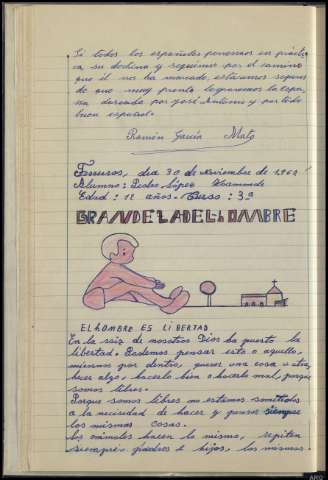 Si todos los españoles ponemos en práctica
su doctrina y seguimos por el camino
que él nos ha marcado, estaremos seguros
de que muy pronto lograremos la España
deseada por José Antonio y por todo
buen español.
Ramón García Mato
día 30 de Noviembre de 1962
Alumno: Pedro López
Edad: 12 años. Curso: 3º
GRANDEZA DEL HOMBRE
EL HOMBRE ES LIBERTAD
En la raiz de nosotros Dios ha puesto la
libertad. Podemos pensar esto o aquello,
mientras por dentro, querer una cosa u otra,
hacer algo, hacerlo bien o hacerlo mal, porque
somos libres.
Porque somos libres no estamos sometidos
a la necesidad de hacer y pensar siempre
las mismas cosas.
Los animales hacen lo mismo, repiten
siempre, padres e hijos, las mismas